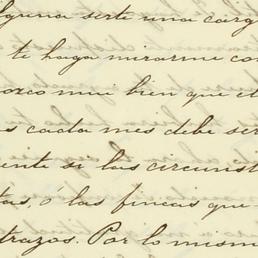 lguna serte una carg
te haga mirarme con
ozco muy bien que el
s cada mes debe ser
ente si las circunst
tas, ó las fincas que
trazos. Por lo mismo